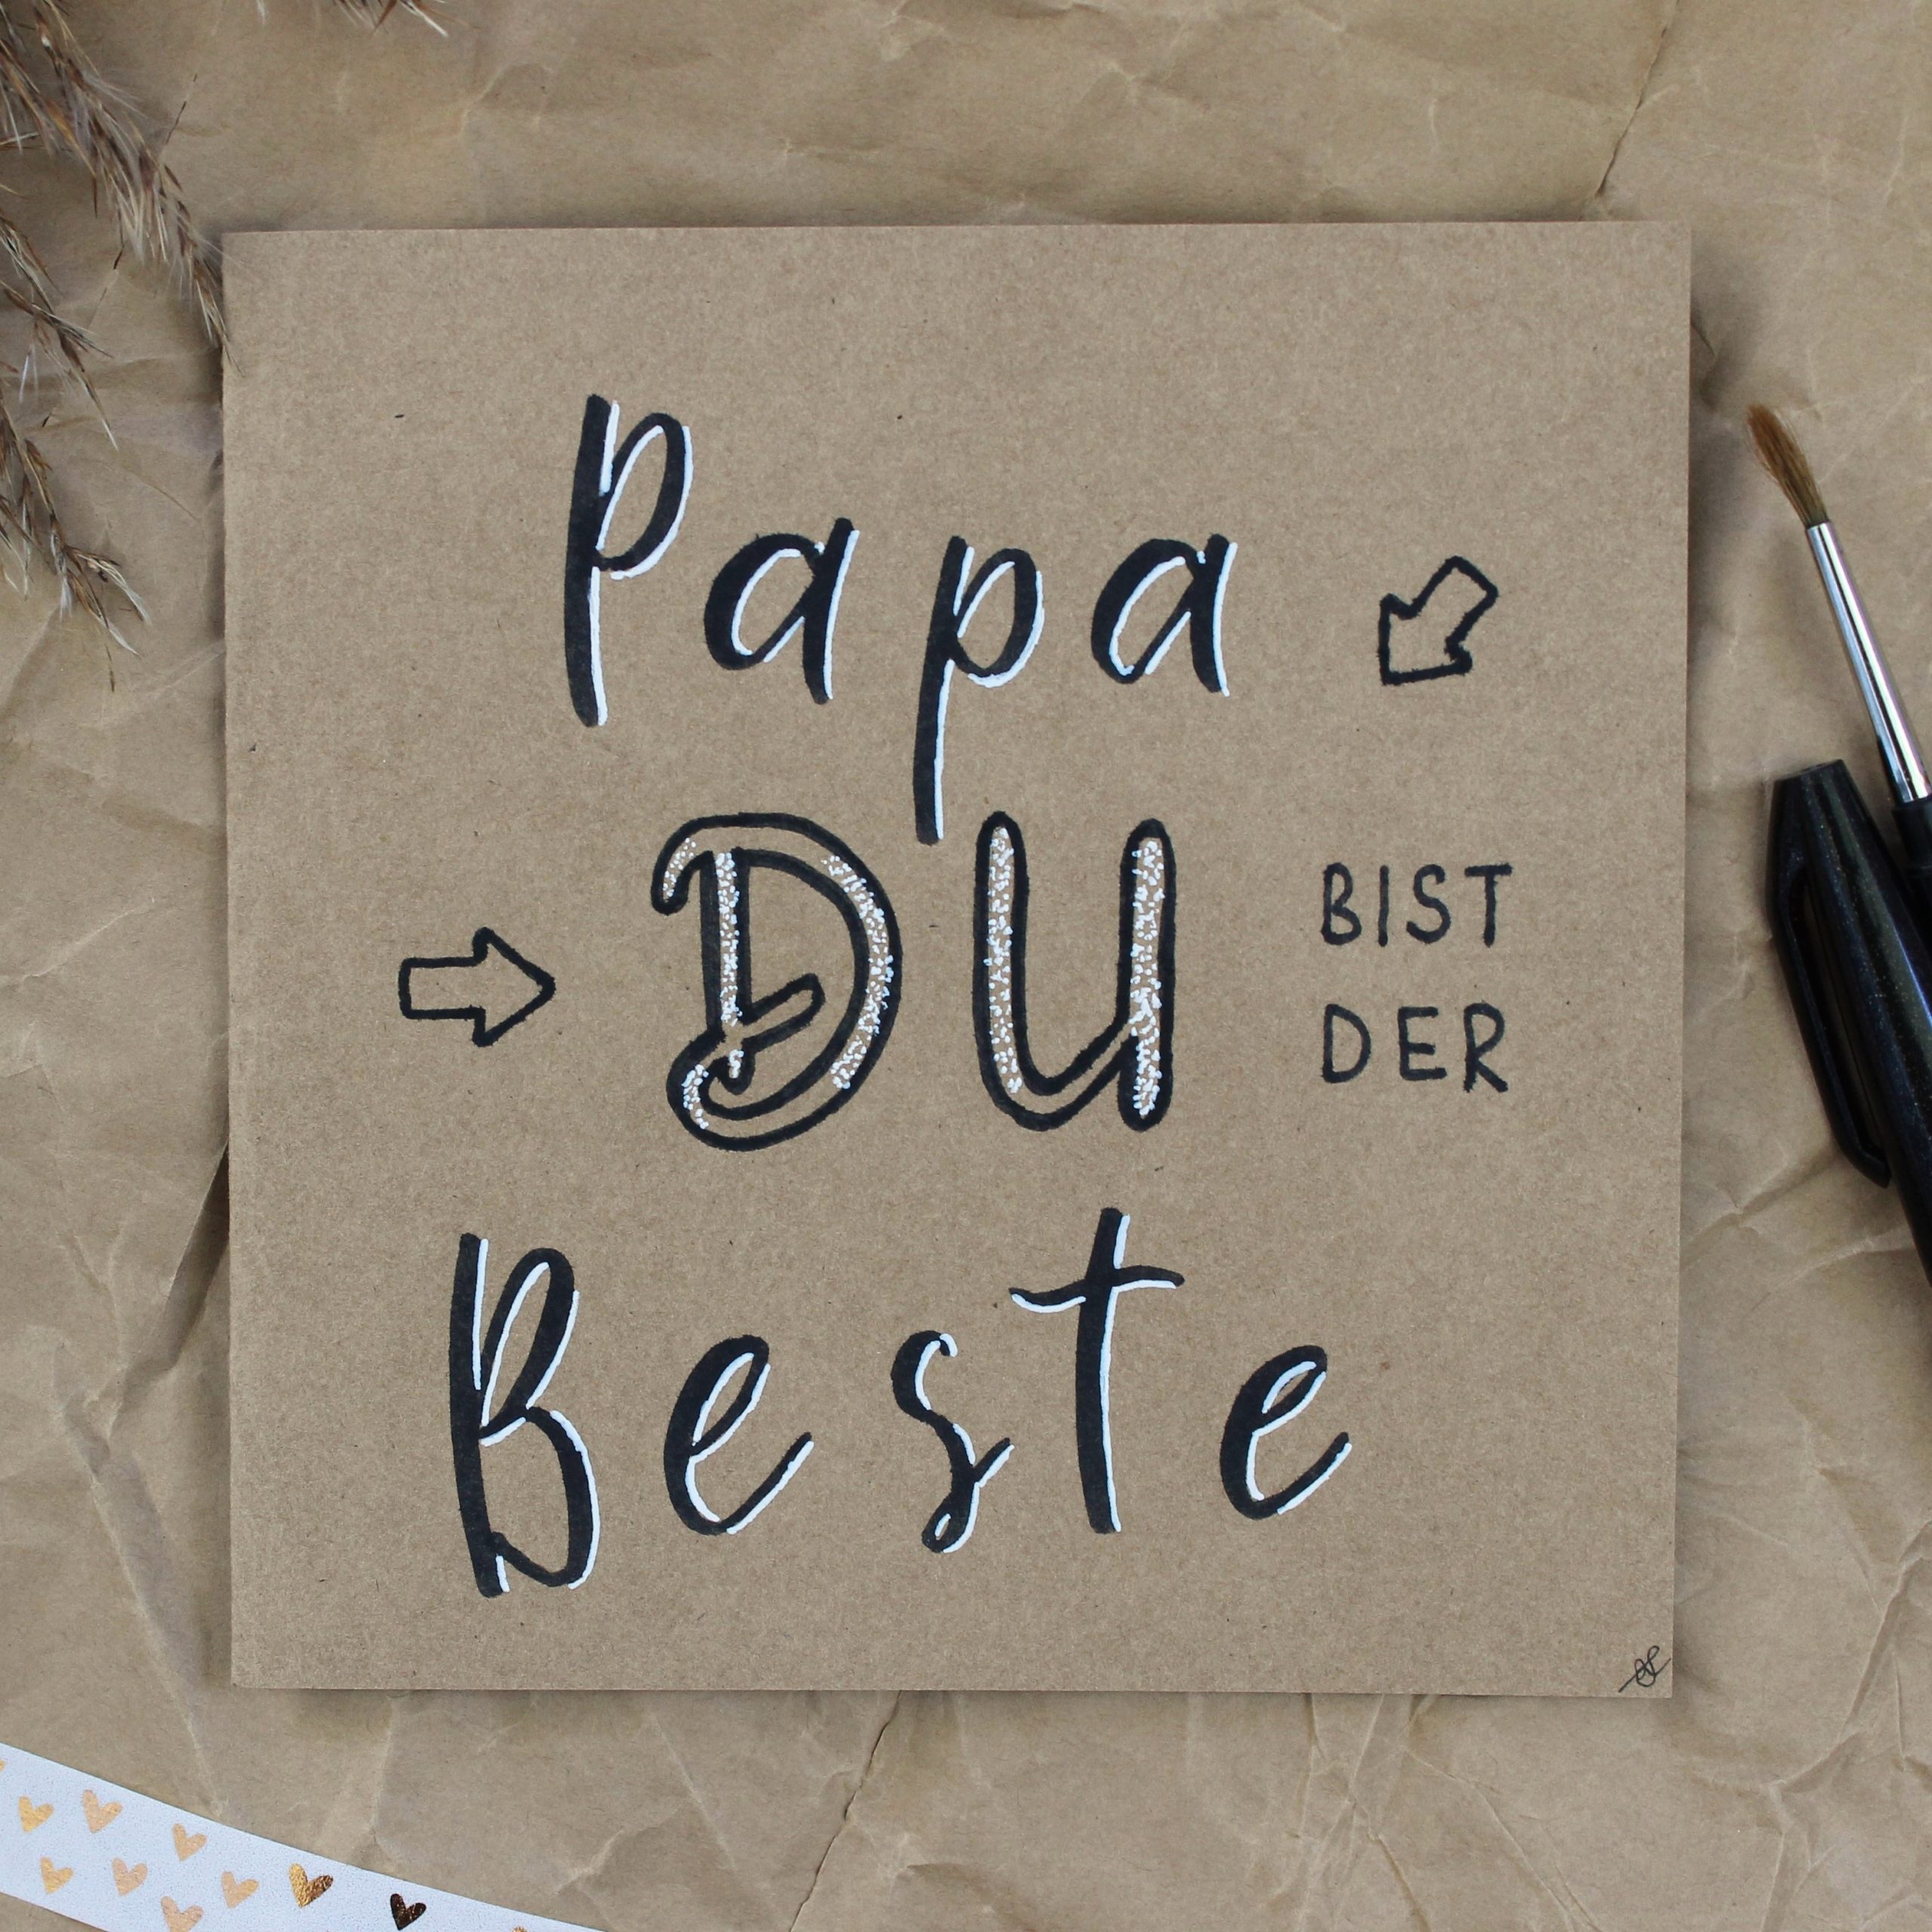 Papa
DU BIST
DER
Beste